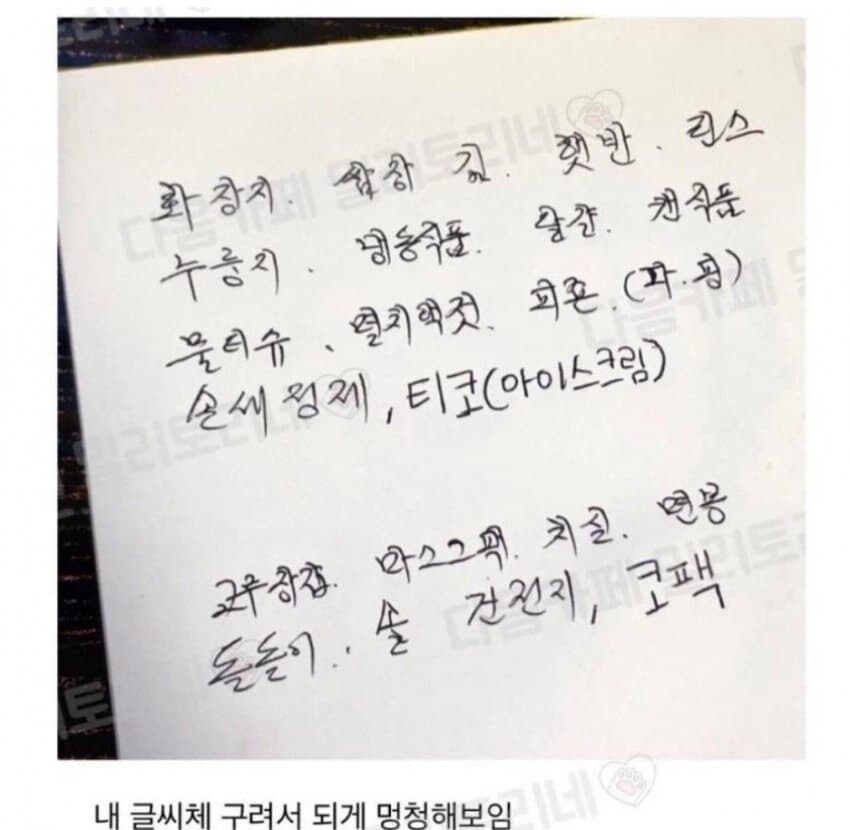 화장지. 쌈장 김. 햇반. 린스
누룽지. 냉동식품. 달걀. 캔식품
물티슈. 멸치액젓. 피죤.(파.핑)
손세정제, 티코(아이스크림)
고무장갑. 마스크팩. 치실. 면봉
돌돌이.. 솔 건전지, 코팩
내 글씨체 구려서 되게 멍청해보임